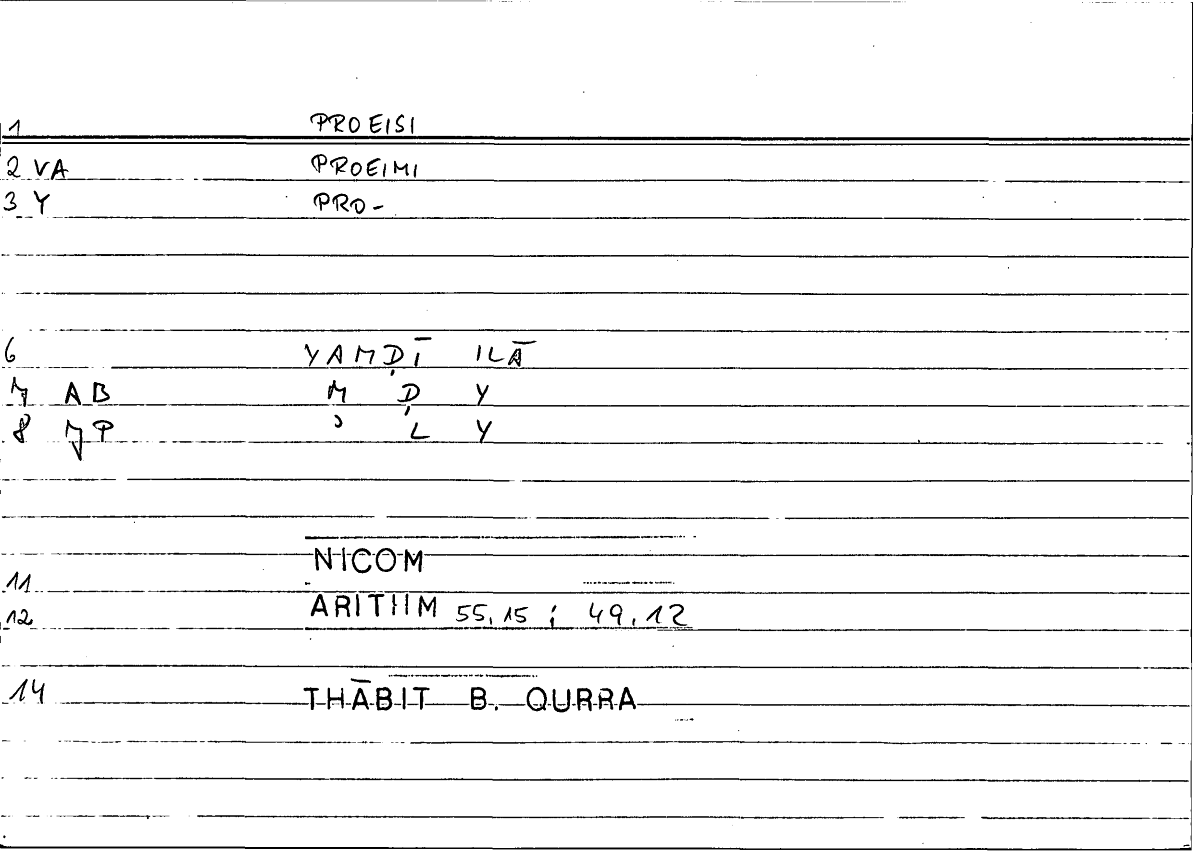 1 PROEISI
2 VA PROEIMI
3 Y PRO-
6 YAMḌĪ ILĀ
7 AB M Ḍ Y
8 JP ʾ L Y
NICOM
11
ARITHM 55,15 ; 49,12
12
14 THĀBIT B. QURRA